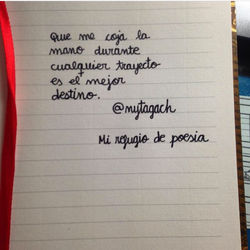 Que me coja la
mano durante
cualquier trayecto
es el mejor
destino.
@mytagach
Mi refugio de poesía